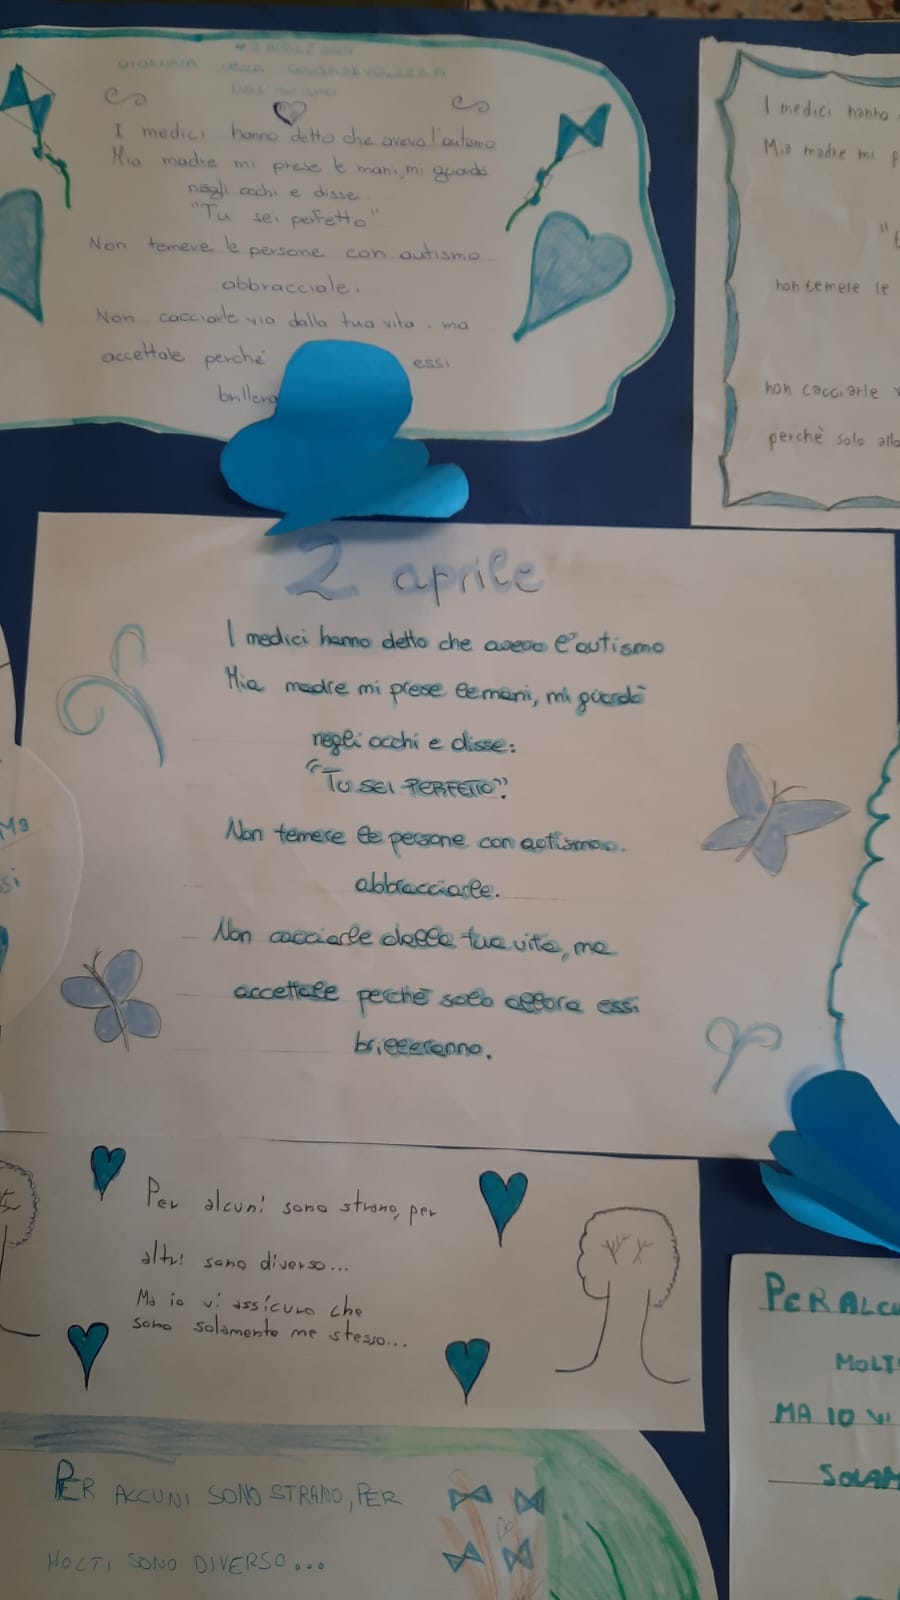 2 APRILE
GIORNATA DELLA CONSAPEVOLEZZA
DELL'AUTISMO
I medici hanno detto che avevo l'autismo
Mia madre mi prese le mani, mi guardò
negli occhi e disse.
"Tu sei perfetto"
Non temere le persone con autismo
abbracciale.
Non cacciarle via dalla tua vita. ma
accettale perché essi
I medici hanno
Mia madre mi p
non temere le
non cacciarle v
perchè solo allo
2 aprile
I medici hanno detto che avevo l'autismo
Mia madre mi prese le mani, mi guardò
negli occhi e disse:
"TU SEI PERFETTO".
Non temere le persone con autismo.
abbracciarle.
Non cacciarle dalla tua vita, ma
accettale perchè solo allora essi
brilleranno.
Ma
si
Per alcuni sono strano, per
altri sono diverso...
Ma io vi assicuro che
sono solamente me stesso...
PER ALCU
MOLTI
MA IO VI
SOLAM
PER ALCUNI SONO STRANO, PER
MOLTI SONO DIVERSO...